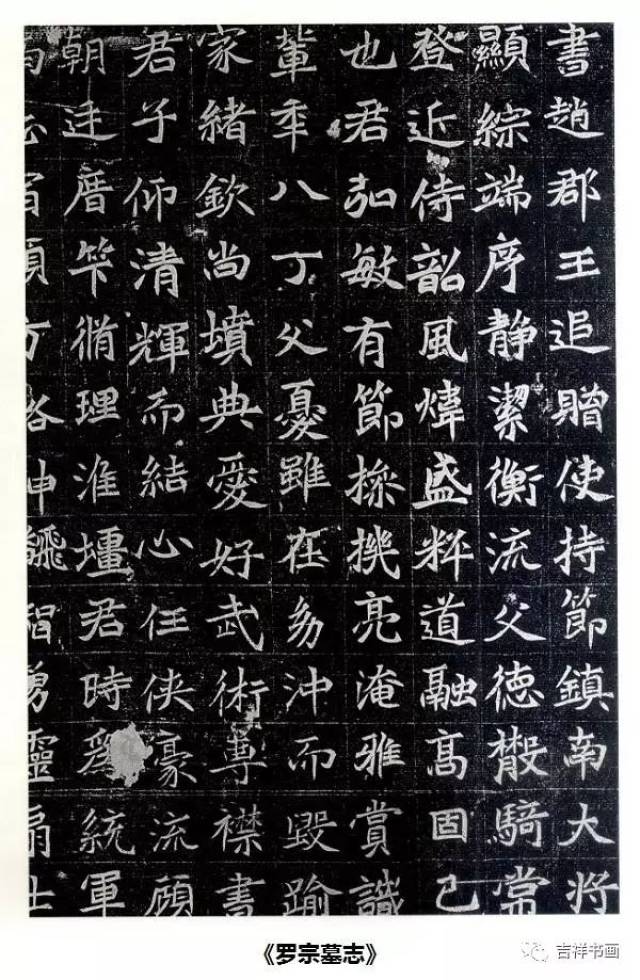 書趙郡王追贈使持節鎮南大將
顯綜端序靜潔衡流父德散騎常
登近侍韶風煒盛粹道融高固已
也君弘敏有節操機亮淹雅賞識
輩年八丁父憂雖在幼沖而毀踰
家緒欽尚墳典愛好武術專襟書
君子仰清輝而結心任俠豪流頋
朝廷曆竿脩理淮壃君時爲統軍
《罗宗墓志》
吉祥书画